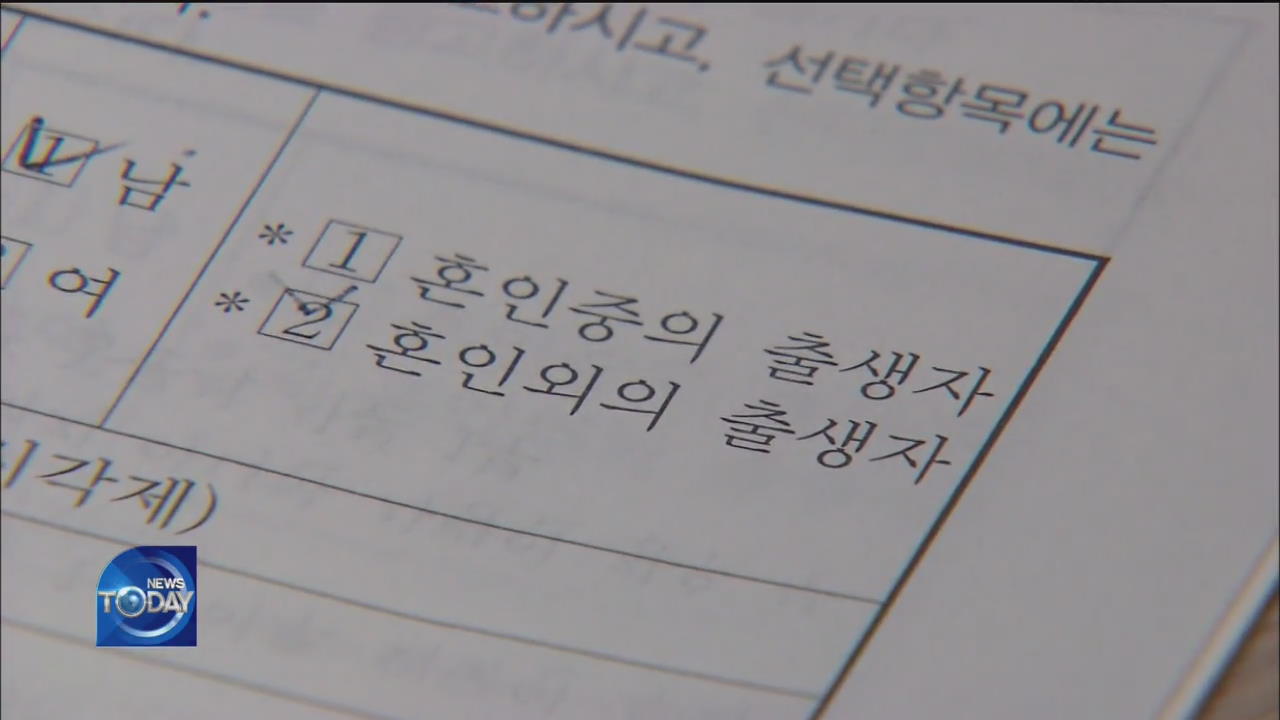 하시고, 선택항목에는
1 남
여
* 1 혼인중의 출생자
* 2 혼인외의 출생자
시각제)
NEWS
TODAY